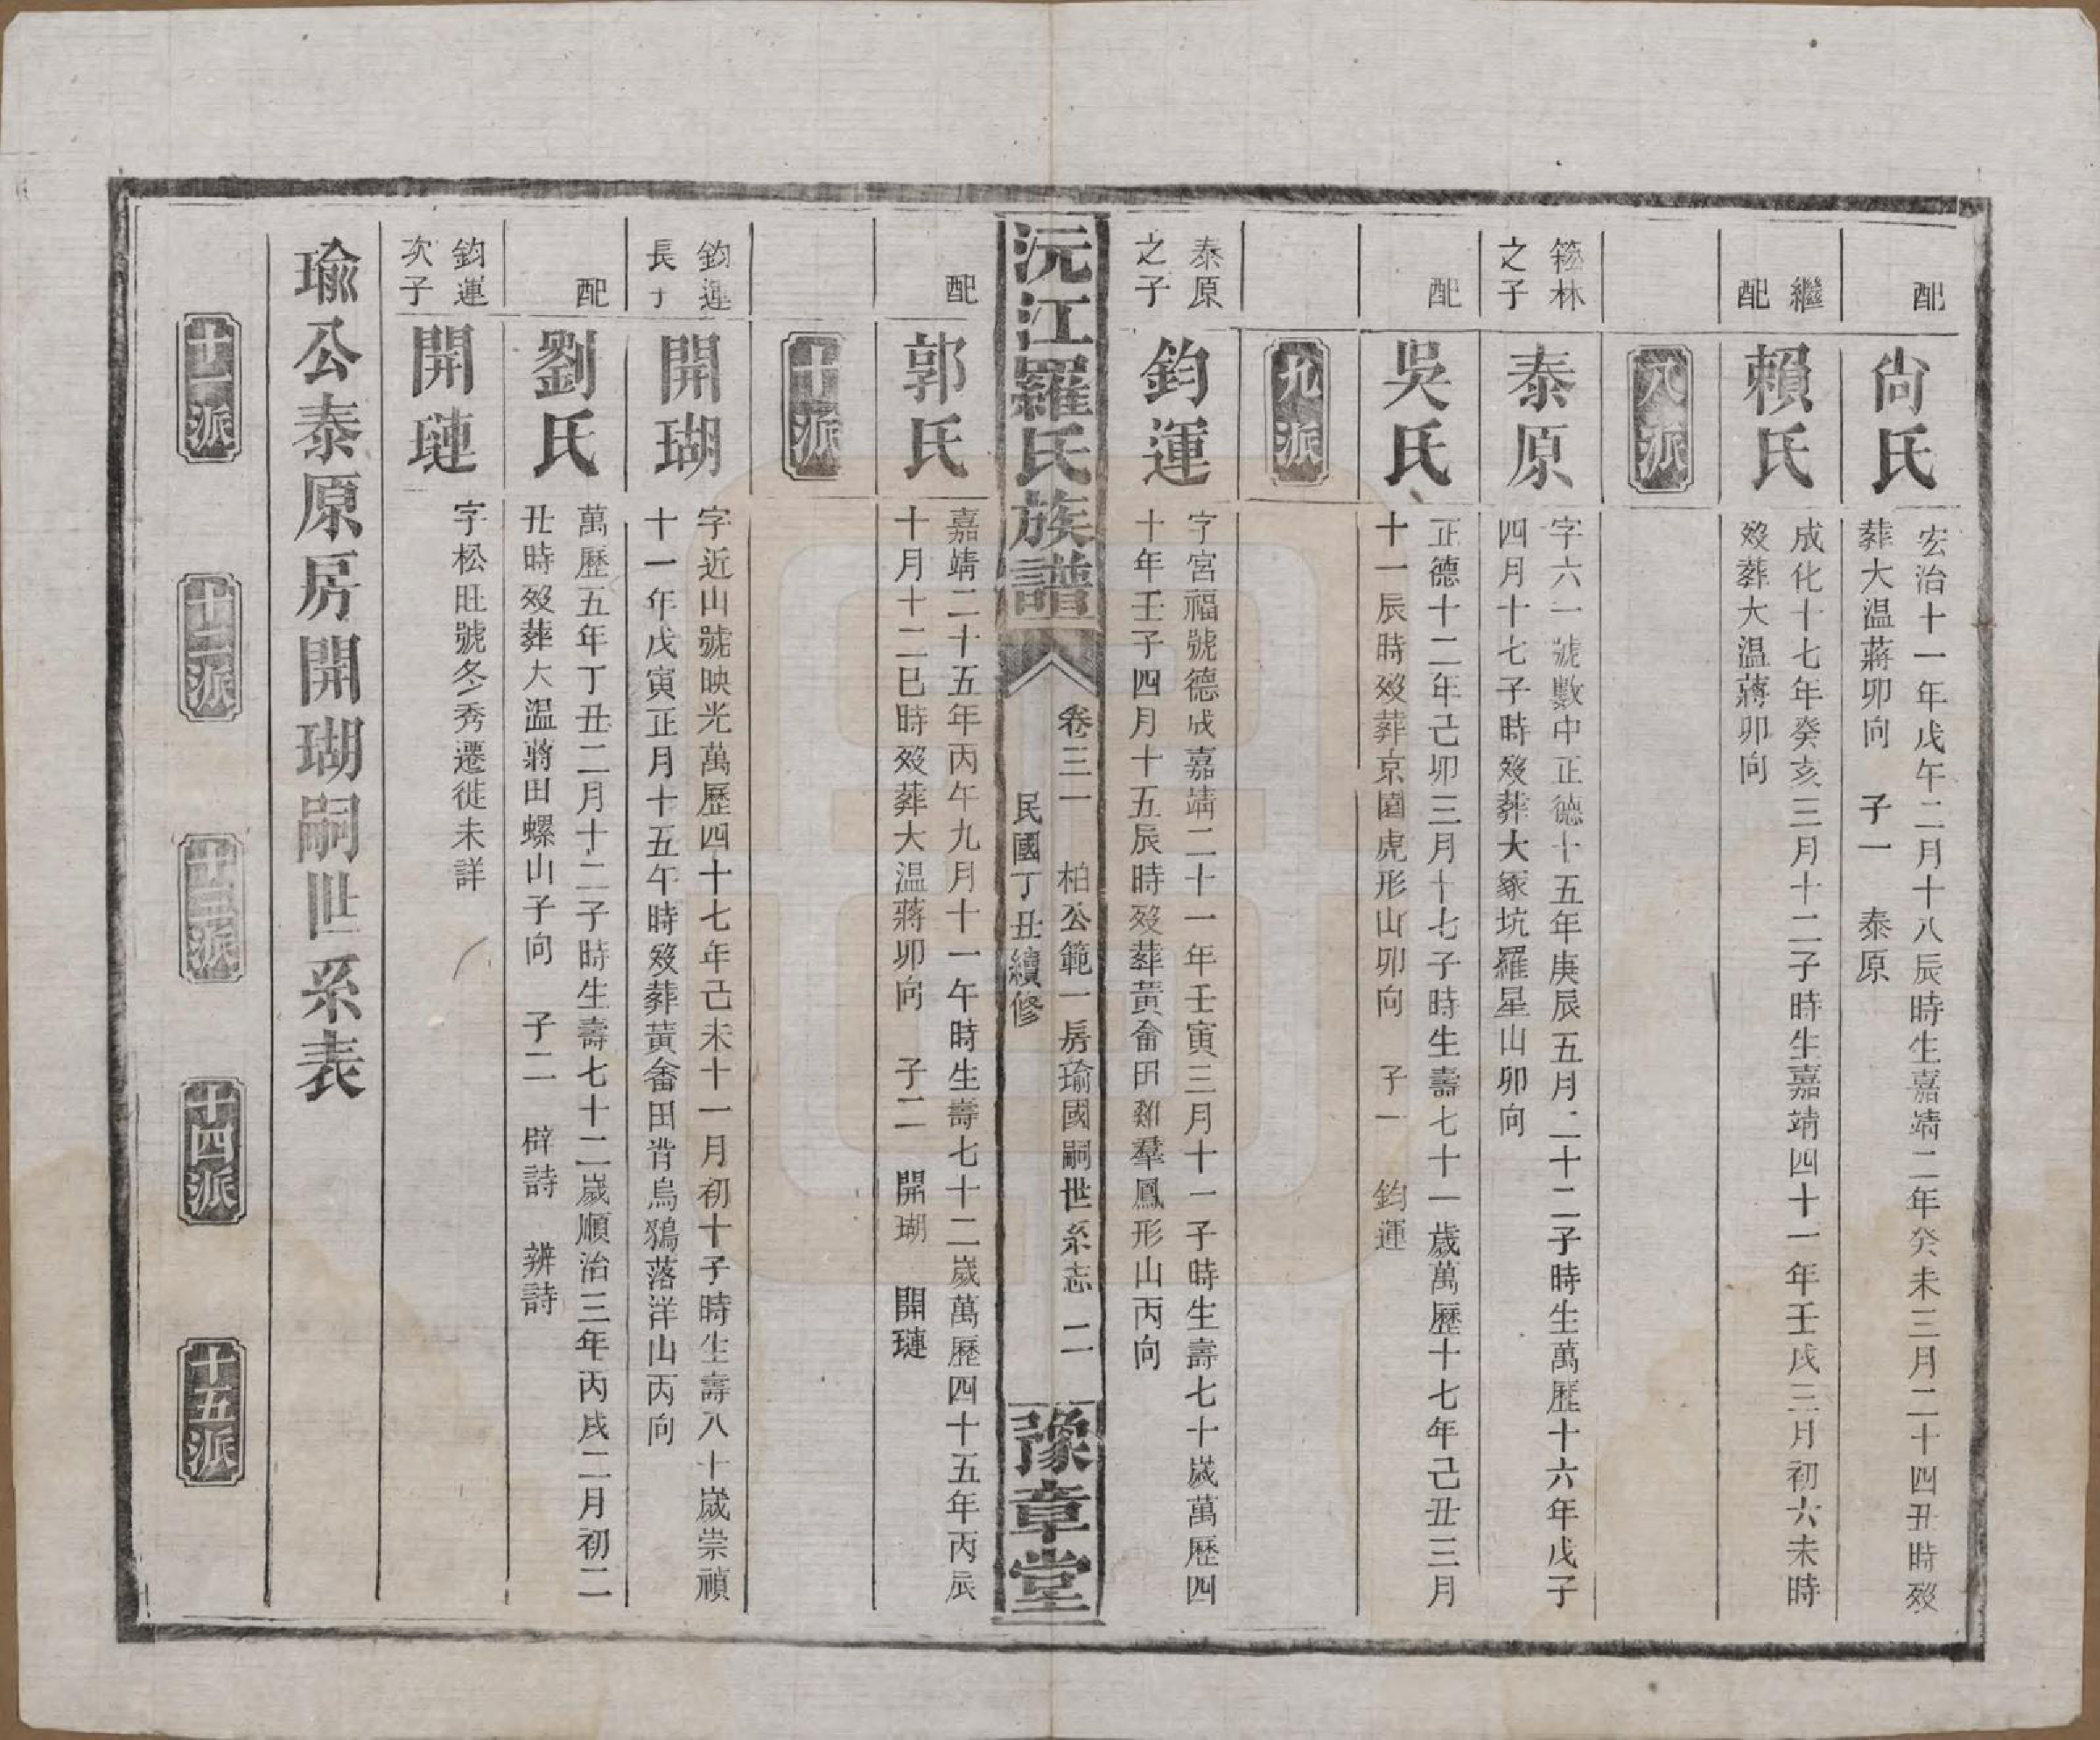 配
尙氏
宏治十一年戊午二月十八辰時生嘉靖二年癸未三月二十四丑時歿
葬大温蔣卯向　子一　泰原
繼
配
賴氏
成化十七年癸亥三月十二子時生嘉靖四十一年壬戌三月初六未時
歿葬大温蔣卯向
八派
林
之子
泰原
字六一號數中正德十五年庚辰五月二十二子時生萬歷十六年戊子
四月十七子時歿葬大家坑羅星山卯向
配
吳氏
正德十二年己卯三月十七子時生壽七十一歲萬歷十七年己丑三月
十一辰時歿葬京園虎形山卯向　子一　鈞運
九派
泰原
之子
鈞運
字宮福號德成嘉靖二十一年壬寅三月十一子時生壽七十歲萬歷四
十年壬子四月十五辰時歿葬黃畬田雞羣鳳形山丙向
沅江羅氏族譜
卷三一　柏公範一房瑜國嗣世系志　二
民國丁丑續修
豫章堂
配
郭氏
嘉靖二十五年丙午九月十一午時生壽七十二歲萬歷四十五年丙辰
十月十二巳時歿葬大温蔣卯向　子二　開瑚　開璉
十派
鈞運
長子
開瑚
字近山號映光萬歷四十七年己未十一月初十子時生壽八十歲崇禎
十一年戊寅正月十五午時歿葬黃畬田背烏鴉落洋山丙向
配
劉氏
萬歷五年丁丑二月十二子時生壽七十二歲順治三年丙戌二月初二
丑時歿葬大温蔣田螺山子向　子二　辟詩　辨詩
鈞運
次子
開璉
字松旺號冬秀遷徙未詳
瑜公泰原房開瑚嗣世系表
十一派
十二派
十三派
十四派
十五派